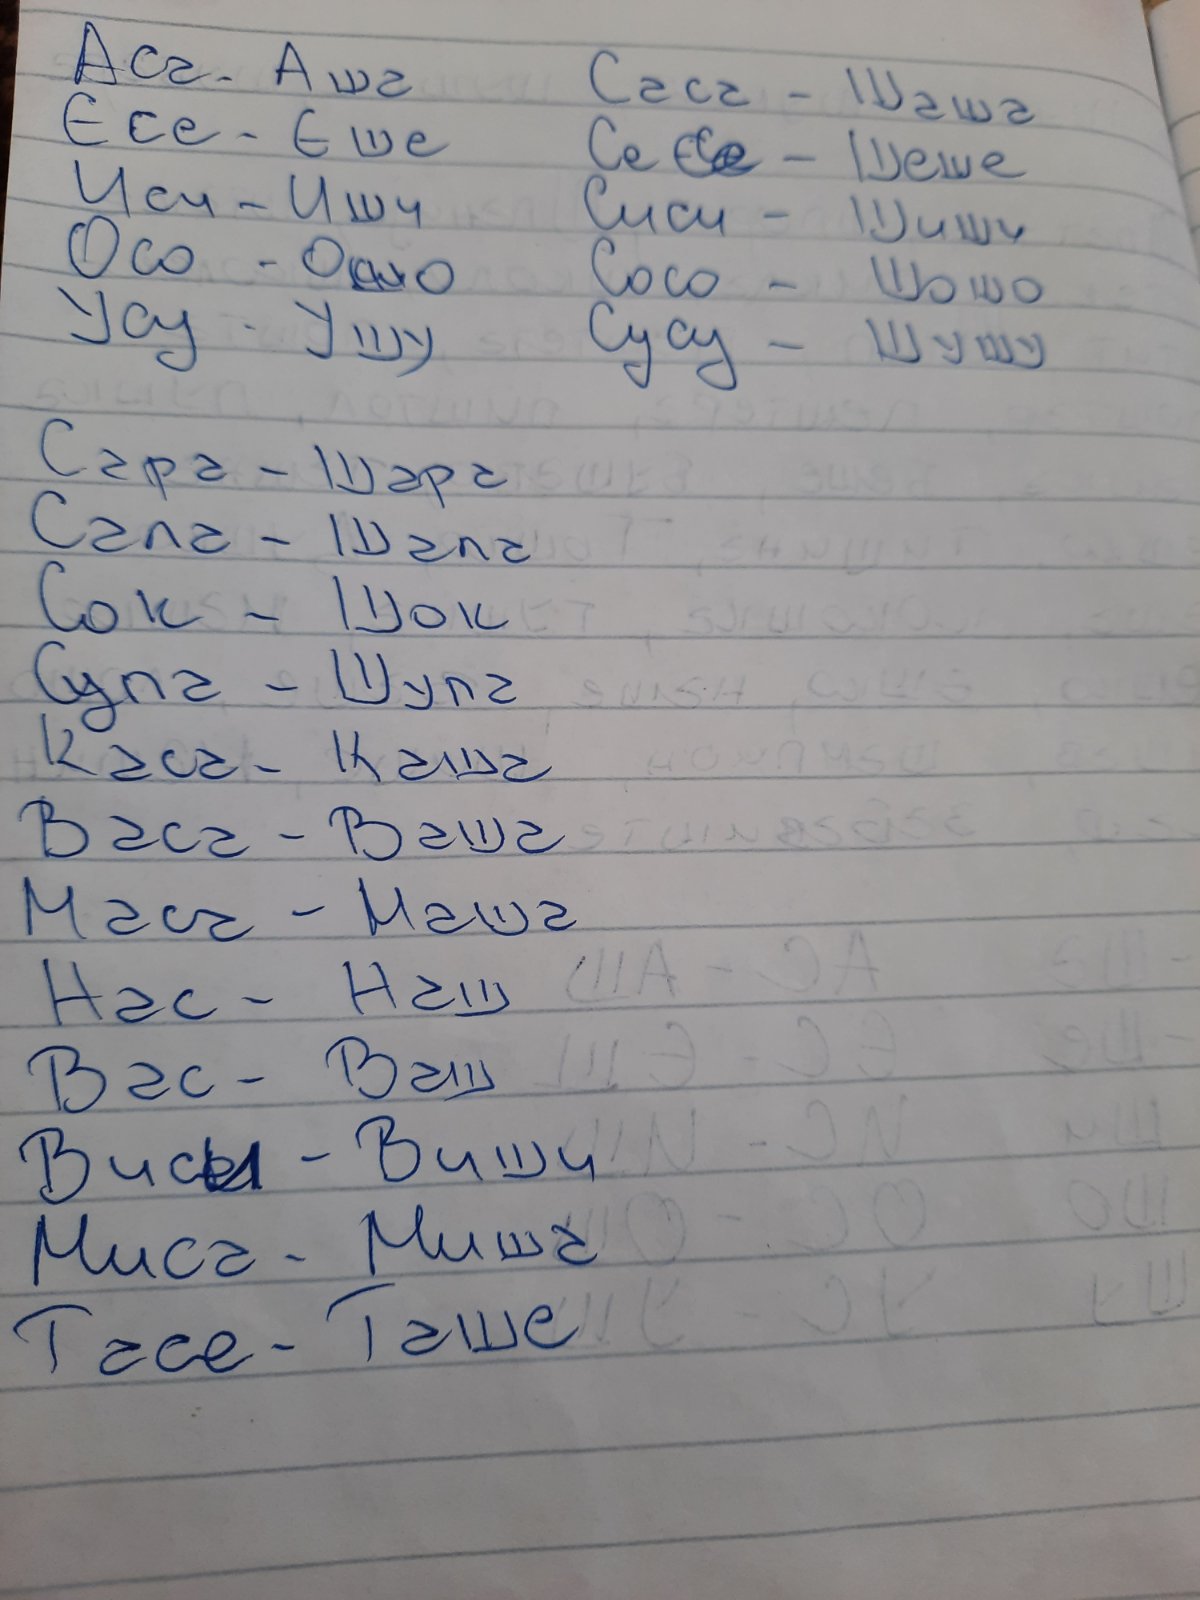 Аса - Аша
Есе - Еше
Иси - Иши
Осо - Ошо
Усу - Ушу
Саса - Шаша
Се се - Шеше
Сиси - Шиши
Сосо - Шошо
Сусу - Шушу
Сара - Шара
Сапа - Шапа
Сок - Шок
Супа - Шупа
Каса - Каша
Васа - Ваша
Маса - Маша
Нас - Наш
Вас - Ваш
Виси - Виши
Миса - Миша
Тасе - Таше